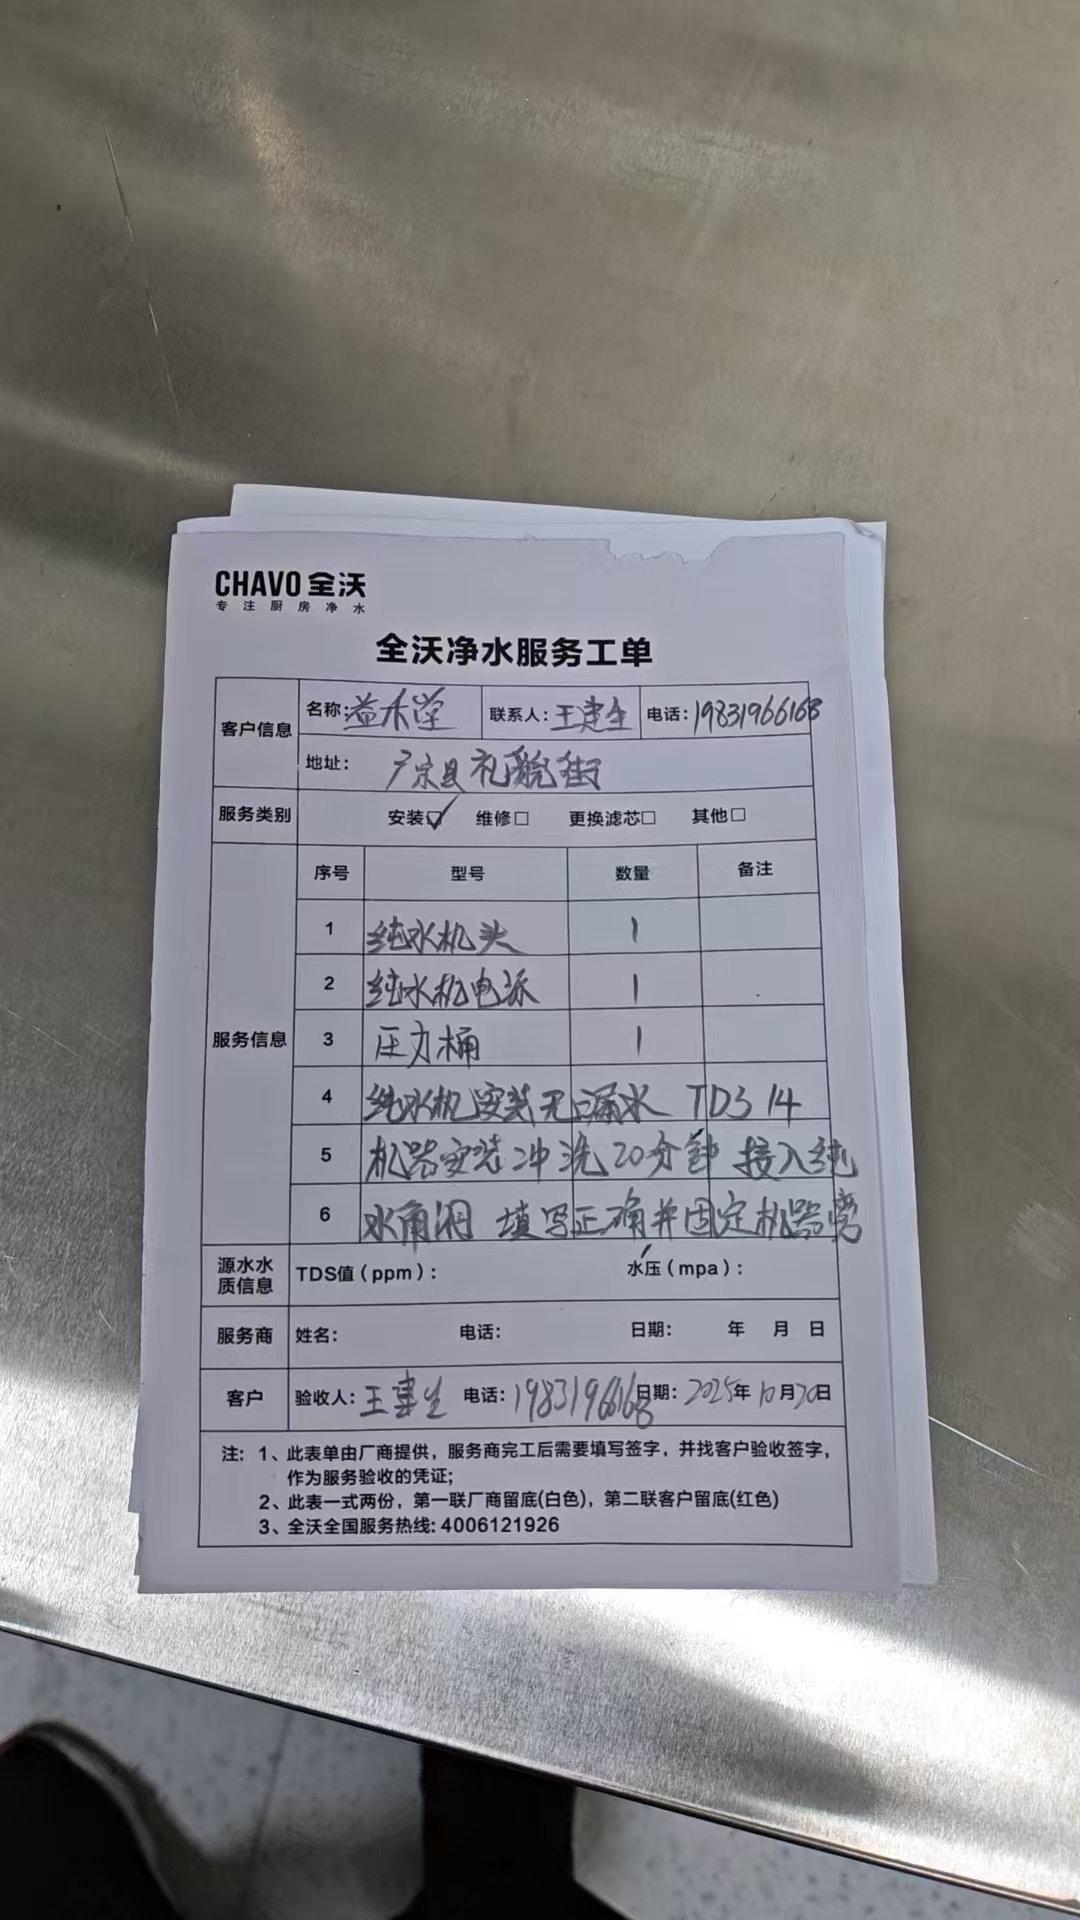 CHAVO 全沃
专注厨房净水
全沃净水服务工单
客户信息 名称:益禾堂 联系人:王建生 电话:19831966168
地址: 广宗县礼貌街
服务类别 安装☑ 维修□ 更换滤芯□ 其他□
服务信息 序号 型号 数量 备注
1 纯水机头 1
2 纯水机电源 1
3 压力桶 1
4 纯水机安装无漏水 TDS 14
5 机器安装冲洗20分钟 接入纯
6 水角阀 填写正确并固定机器旁
源水水质信息 TDS值(ppm): 水压(mpa):
服务商 姓名: 电话: 日期: 年 月 日
客户 验收人:王建生 电话:19831966168 日期:2025年10月20日
注: 1、此表单由厂商提供，服务商完工后需要填写签字，并找客户验收签字，
作为服务验收的凭证;
2、此表一式两份，第一联厂商留底(白色)，第二联客户留底(红色)
3、全沃全国服务热线: 4006121926